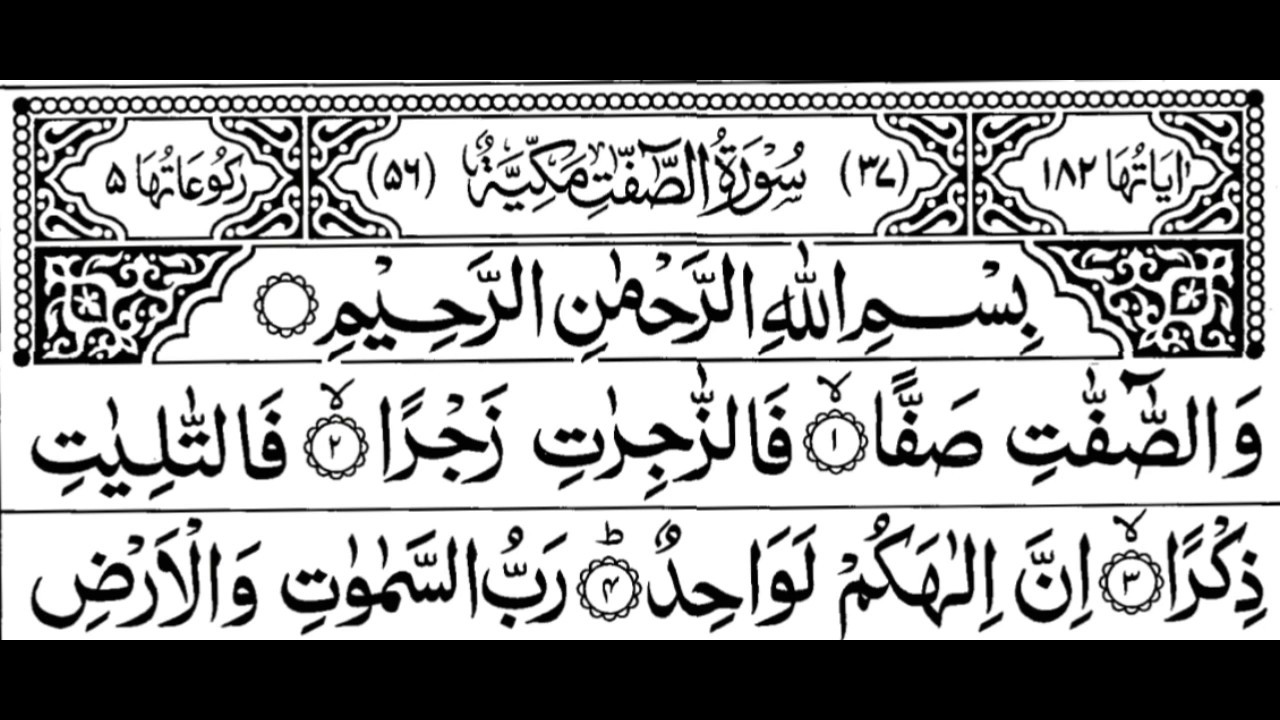 اٰيَاتُهَا ١٨٢ (٣٧) سُوْرَةُ الصّٰٓفّٰتِ مَكِّيَّةٌ (٥٦) رُكُوْعَاتُهَا ٥
بِسْمِ اللّٰهِ الرَّحْمٰنِ الرَّحِيْمِ
وَالصّٰٓفّٰتِ صَفًّا ۙ﴿١﴾ فَالزّٰجِرٰتِ زَجْرًا ۙ﴿٢﴾ فَالتّٰلِيٰتِ
ذِكْرًا ۙ﴿٣﴾ اِنَّ اِلٰهَكُمْ لَوَاحِدٌ ؕ﴿۴﴾ رَبُّ السَّمٰوٰتِ وَالْاَرْضِ